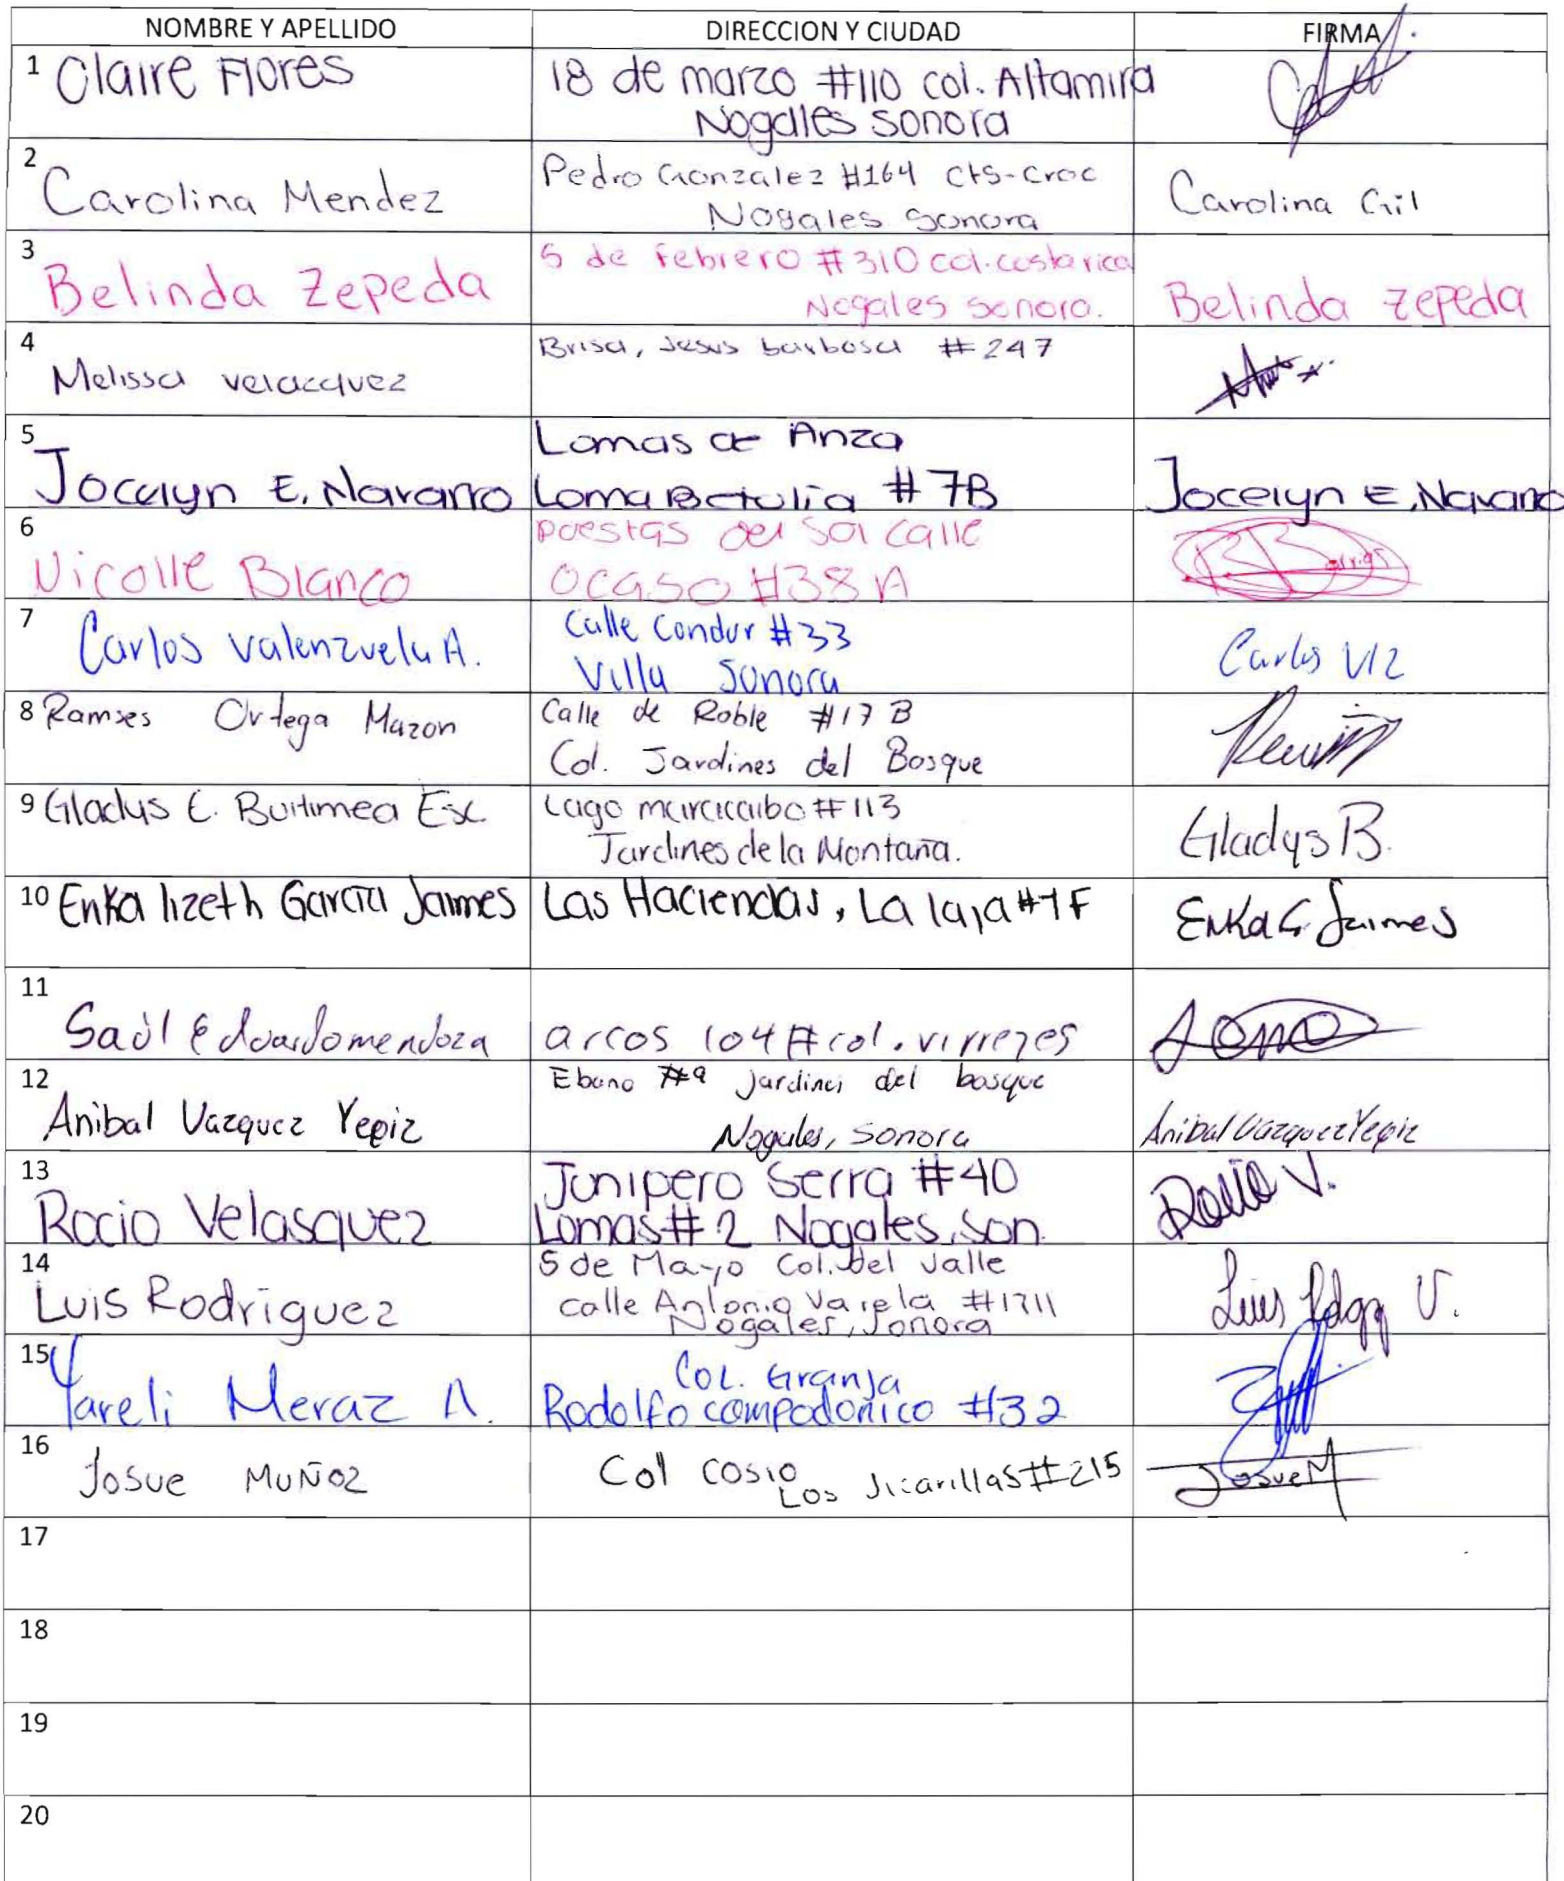 NOMBRE Y APELLIDO DIRECCION Y CIUDAD FIRMA
1 Claire Flores 18 de marzo #110 col. Altamira
Nogales sonora
2 Carolina Mendez Pedro Gonzalez #164 Cts-Croc Carolina Gil
Nogales Sonora
3 Belinda Zepeda 5 de febrero #310 col. costa rica Belinda Zepeda
Nogales sonora.
4 Melissa velacquez Brisa, Jesus barbosa #247
5 Jocelyn E. Navarro Lomas de Anza Jocelyn E. Navarro
Loma Betulia #7B
6 Nicolle Blanco puestas del sol calle
ocaso #38 A
7 Carlos Valenzuela A. Calle Condor #33 Carlos Vlz
Villa Sonora
8 Ramses Ortega Mazon Calle de Roble #17 B
Col. Jardines del Bosque
9 Gladys E. Buitimea Esc. Lago maracaibo #113 Gladys B.
Jardines de la Montaña.
10 Erika lizeth García Jaimes Las Haciendas, La laja #7F Erika G. Jaimes
11 Saúl Eduardo mendoza arcos 104# col. virreyes
12 Anibal Vazquez Yepiz Ebano #9 jardines del bosque Anibal Vazquez Yepiz
Nogales, sonora
13 Rocio Velasquez Junipero Serra #40 Rocio V.
Lomas #2 Nogales, Son.
14 Luis Rodriguez 5 de Mayo Col. del Valle Luis V.
calle Antonio Varela #1711
Nogales, Sonora
15 Yareli Meraz A. Col. Granja
Rodolfo campodonico #32
16 Josue MUÑOZ Col COSIO Josue M
Los Jicarillas #215
17
18
19
20